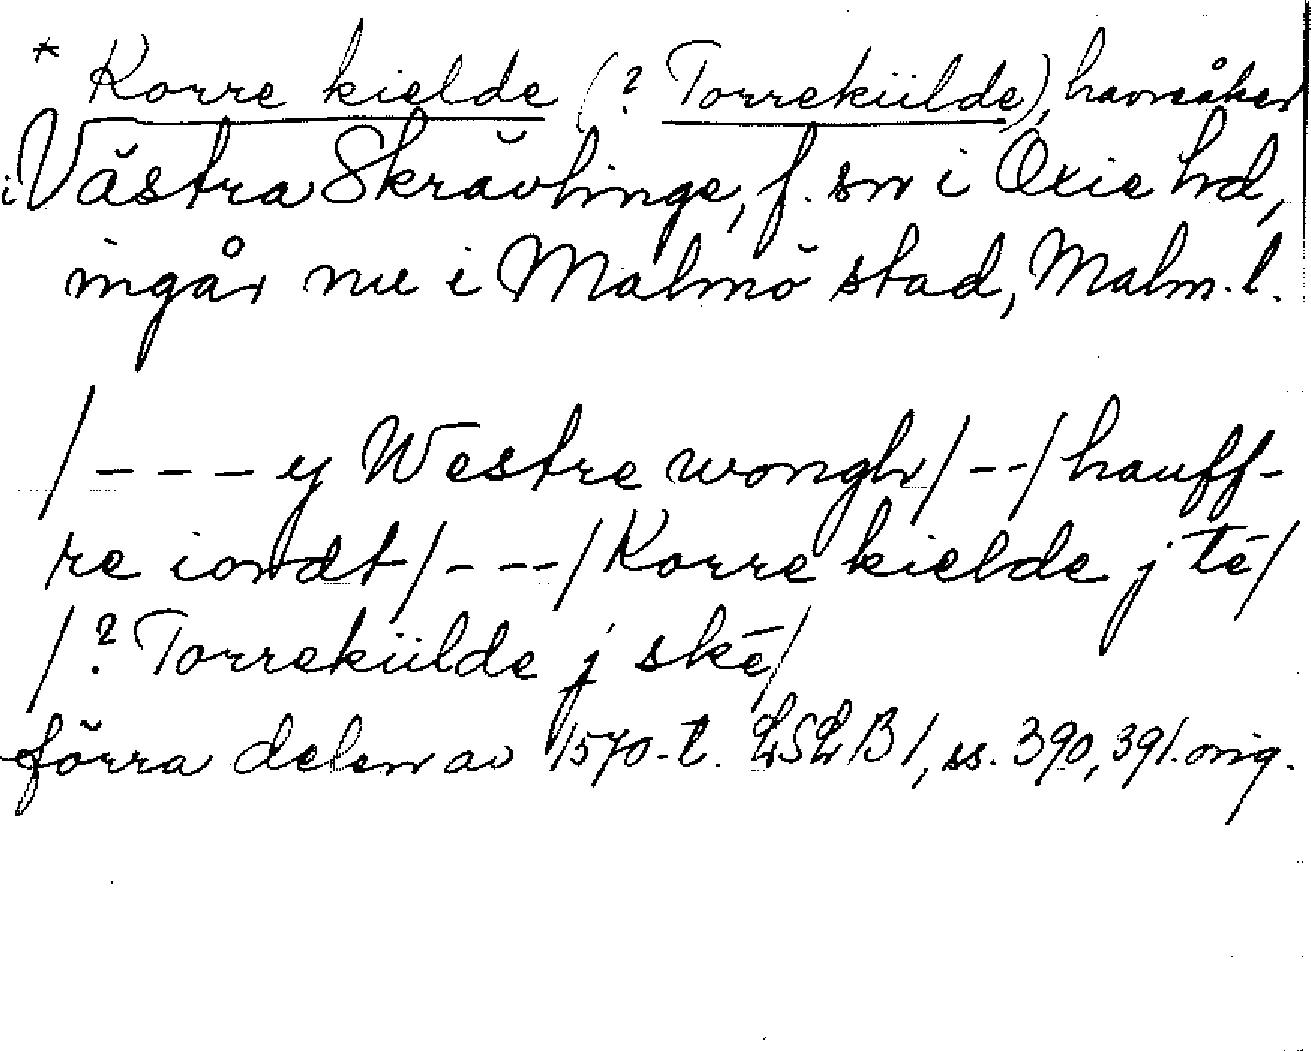 * Korre kielde (? Torrekiilde), havreåker
i Västra Skrävlinge, f. sn i Oxie hd,
ingår nu i Malmö stad, Malm. l.
/- - - y Westre wongh/ - -/ hauff-
re iordt/ - - -/ Korre kielde j tē/
/? Torrekiilde j skē/
förra delen av 1570-t. LSLB 1, ss. 390, 391. orig.